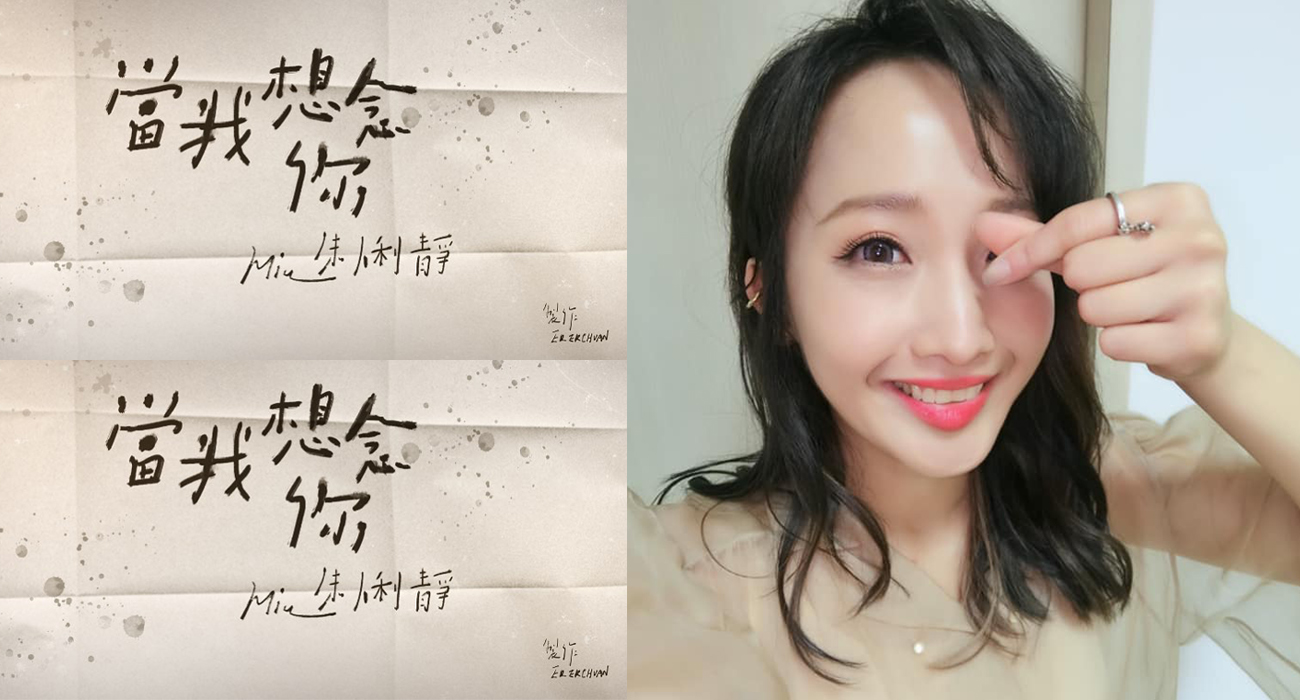 當我想念
你
Miu 朱俐靜
製作
ERERCHUAN
當我想念
你
Miu 朱俐靜
製作
ERERCHUAN